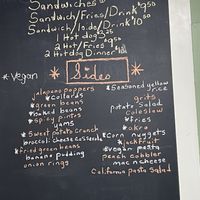 Sandwiches
Sandwich/Fries/Drink
Sandwich/Side/Drink
1 Hot dog
2 Hot/Fries
2 Hotdog Dinner
*Vegan
* Sides *
jalapeno poppers
*collards
*green beans
*baked beans
*spicy pintos
yams
*Sweet potato crunch
broccoli casserole
*fried green beans
banana pudding
onion rings
*Seasoned yellow rice
grits
potato salad
coleslaw
*fries
*okra
*corn nuggets
*jackfruit
*vegan pasta
peach cobbler
mac n cheese
California Pasta Salad